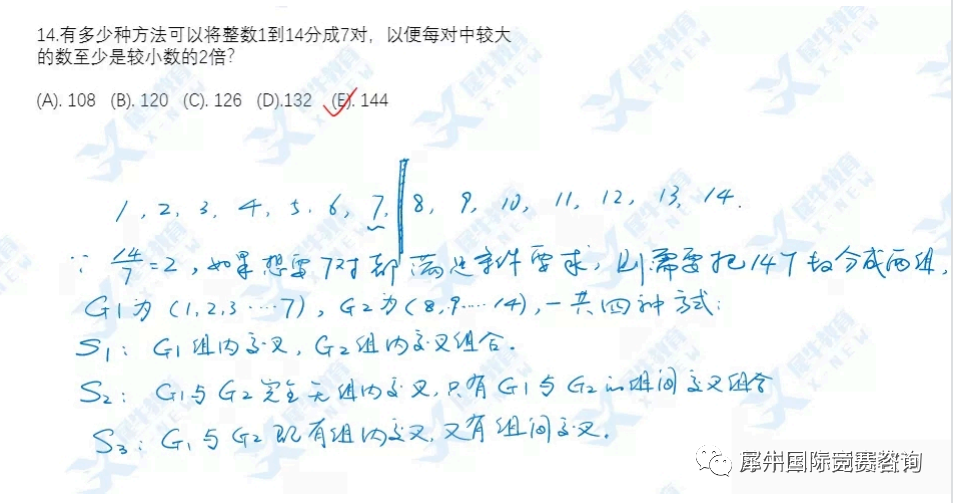 14.有多少种方法可以将整数1到14分成7对，以便每对中较大
的数至少是较小数的2倍？
(A). 108 (B). 120 (C). 126 (D).132 (E). 144
1, 2, 3, 4, 5, 6, 7, 8, 9, 10, 11, 12, 13, 14.
∵ 14/7=2, 如果想要7对都满足条件要求, 则需要把14个数分成两组,
G1为 (1,2,3····7), G2为(8,9····14), 一共四种方式:
S1: G1组内交叉, G2组内交叉组合.
S2: G1与G2完全无组内交叉, 只有G1与G2的组间交叉组合
S3: G1与G2既有组内交叉, 又有组间交叉.
犀牛国际竞赛咨询
犀牛教育
X-NEW